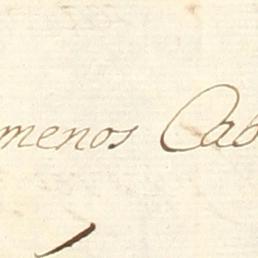 menos Cab